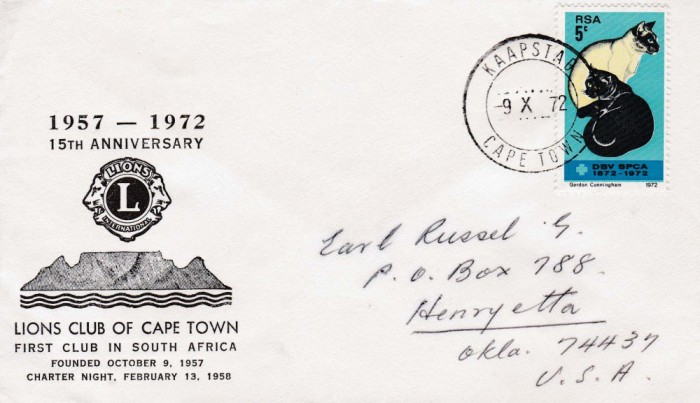 1957 — 1972
15TH ANNIVERSARY
LIONS
L
INTERNATIONAL
LIONS CLUB OF CAPE TOWN
FIRST CLUB IN SOUTH AFRICA
FOUNDED OCTOBER 9, 1957
CHARTER NIGHT, FEBRUARY 13, 1958
KAAPSTA
-9 X 72
CAPE TOWN
RSA
5c
DBV SPCA
1872-1972
Gordon Cunningham 1972
Earl Russel G.
P.O. Box 788.
Henryetta
Okla. 74437
U.S.A.